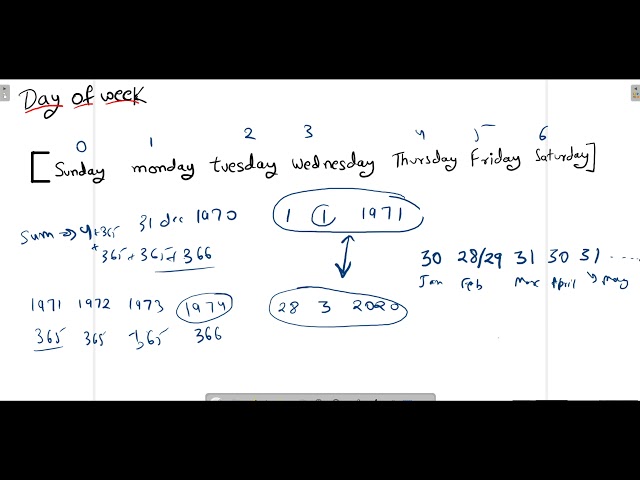 Day of week
0 1 2 3 4 5 6
[Sunday monday tuesday wednesday Thursday Friday Saturday]
31 dec 1970
1 1 1971
Sum → 4 + 365
+ 365 + 365 + 366
30 28/29 31 30 31 .....
Jan Feb Mar April → May
1971 1972 1973 1974
365 365 365 366
28 3 2020